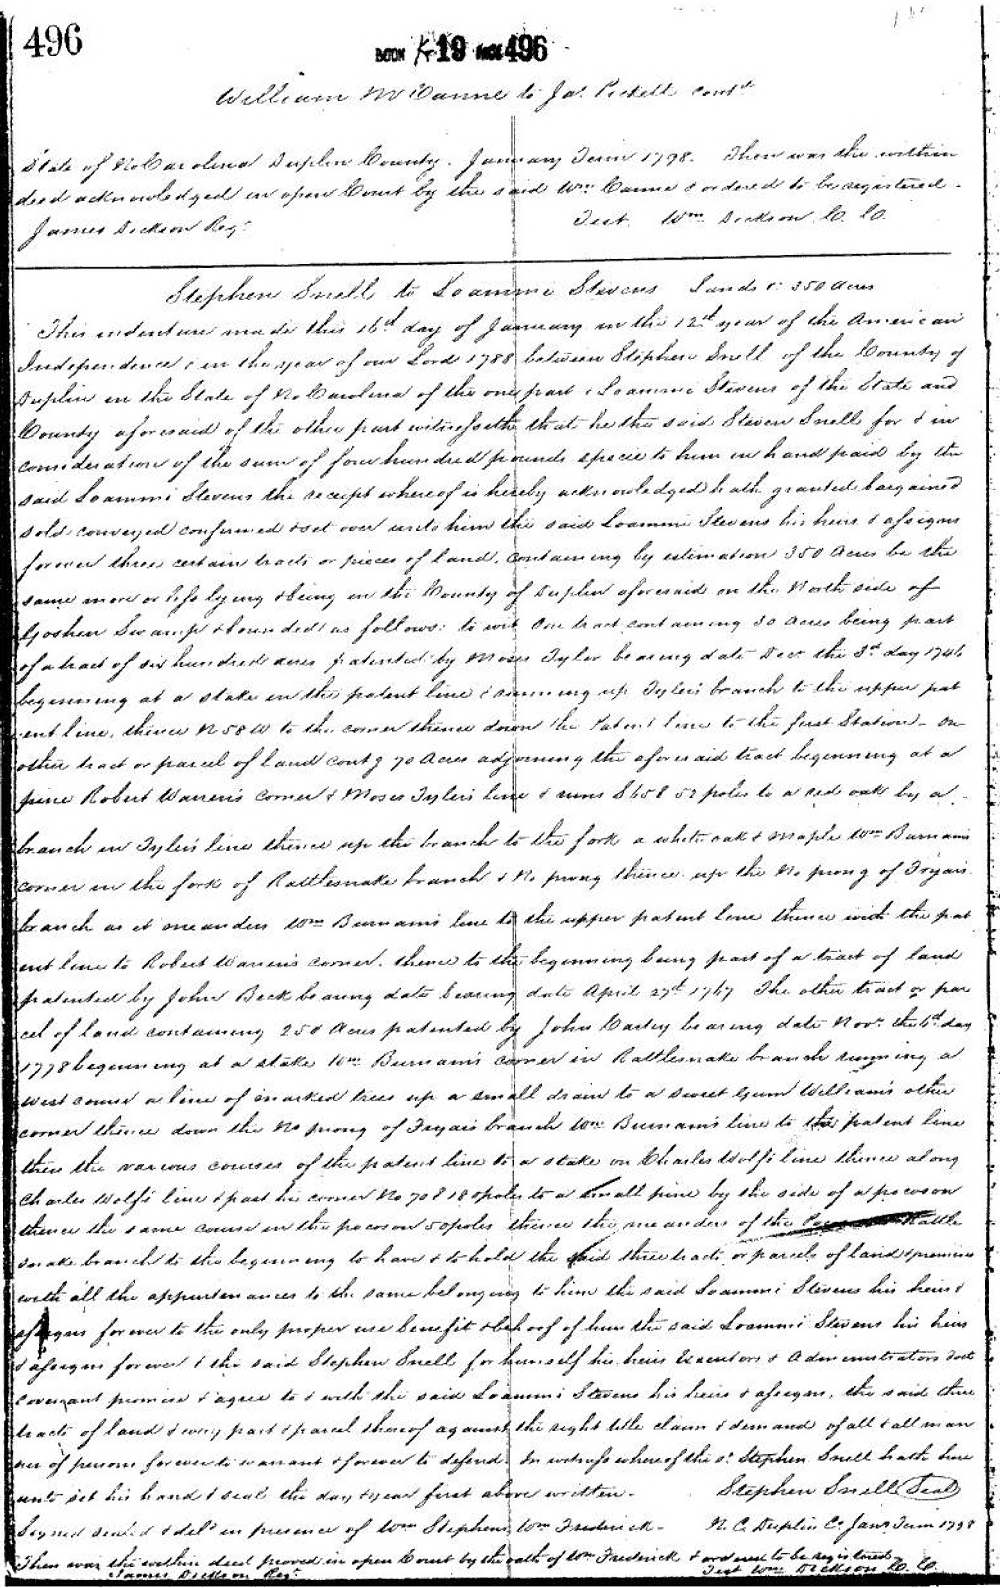 496
BOOK K-19 PAGE 496
William McCanne to Ja. Pickett contd
State of No Carolina Duplin County. January Term 1798. Then was the within
deed acknowledged in open Court by the said Wm Canne & ordered to be registered.
James Dickson Regr. Test. Wm Dickson C. C.
Stephen Snell to Loammi Stevens Lands &c 350 acres
This indenture made this 16th day of January in the 12th year of the American
Independence & in the year of our Lord 1788 between Stephen Snell of the County of
Duplin in the State of No Carolina of the one part & Loammi Stevens of the State and
County aforesaid of the other part witnesseth that he the said Steven Snell for & in
consideration of the sum of four hundred pounds specie to him in hand paid by the
said Loammi Stevens the receipt whereof is hereby acknowledged hath granted bargained
sold conveyed confirmed & set over unto him the said Loammi Stevens his heirs & assigns
forever three certain tracts or pieces of land, containing by estimation 350 Acres be the
same more or less lying & being in the County of Duplin aforesaid on the North side of
Goshen Swamp & bounded as follows: to wit One tract containing 30 acres being part
of a tract of six hundred acres patented by Moses Tyler bearing date Decr. the 3d day 1746
beginning at a stake in the patent line & running up Tyler's branch to the upper pat
ent line, thence N 58 W to the corner thence down the Patent line to the first Station. An
other tract or parcel of land contg 70 Acres adjoining the aforesaid tract beginning at a
pine Robert Warren's corner & Moses Tyler's line & runs S 65 E 52 poles to a red oak by a
branch in Tyler's line thence up the branch to the fork a white oak & maple Wm Burnam's
corner in the fork of Rattlesnake branch & No prong thence up the No prong of Fryar's
branch as it meanders Wm Burnam's line to the upper patent line thence with the pat
ent line to Robert Warren's corner. thence to the beginning being part of a tract of land
patented by John Beck bearing date bearing date April 27th 1767 The other tract or par
cel of land containing 250 Acres patented by John Carley bearing date Novr. the 6th day
1778 beginning at a stake Wm Burnam's corner in Rattlesnake branch running a
west course a line of marked trees up a small drain to a sweet gum William's other
corner thence down the No prong of Fryar's branch Wm Burnam's line to the patent line
then the various courses of the patent line to a stake on Charles Wolf's line thence along
Charles Wolf's line & past his corner No 70 E 180 poles to a small pine by the side of a pocoson
thence the same course in the pocoson 50 poles thence the meanders of the Rattle
snake branch to the beginning to have & to hold the said three tracts or parcels of land & premises
with all the appurtenances to the same belonging to him the said Loammi Stevens his heirs &
assigns forever to the only proper use benefit & behoof of him the said Loammi Stevens his heirs
& assigns forever & the said Stephen Snell for himself his heirs Executors & Administrators doth
covenant promise & agree to & with the said Loammi Stevens his heirs & assigns, the said three
tracts of land & every part & parcel thereof against the right title claim & demand of all & all man
ner of persons forever to warrant & forever to defend. In witness whereof the sd Stephen Snell hath here
unto set his hand & seal the day & year first above written. Stephen Snell (Seal)
Signed sealed & deld in presence of Wm Stephens, Wm Frederick. N. C. Duplin Co Jany Term 1798
Then was the within deed proved in open Court by the oath of Wm Frederick & ordered to be registered.
James Dickson Regr. Test Wm Dickson C. C.